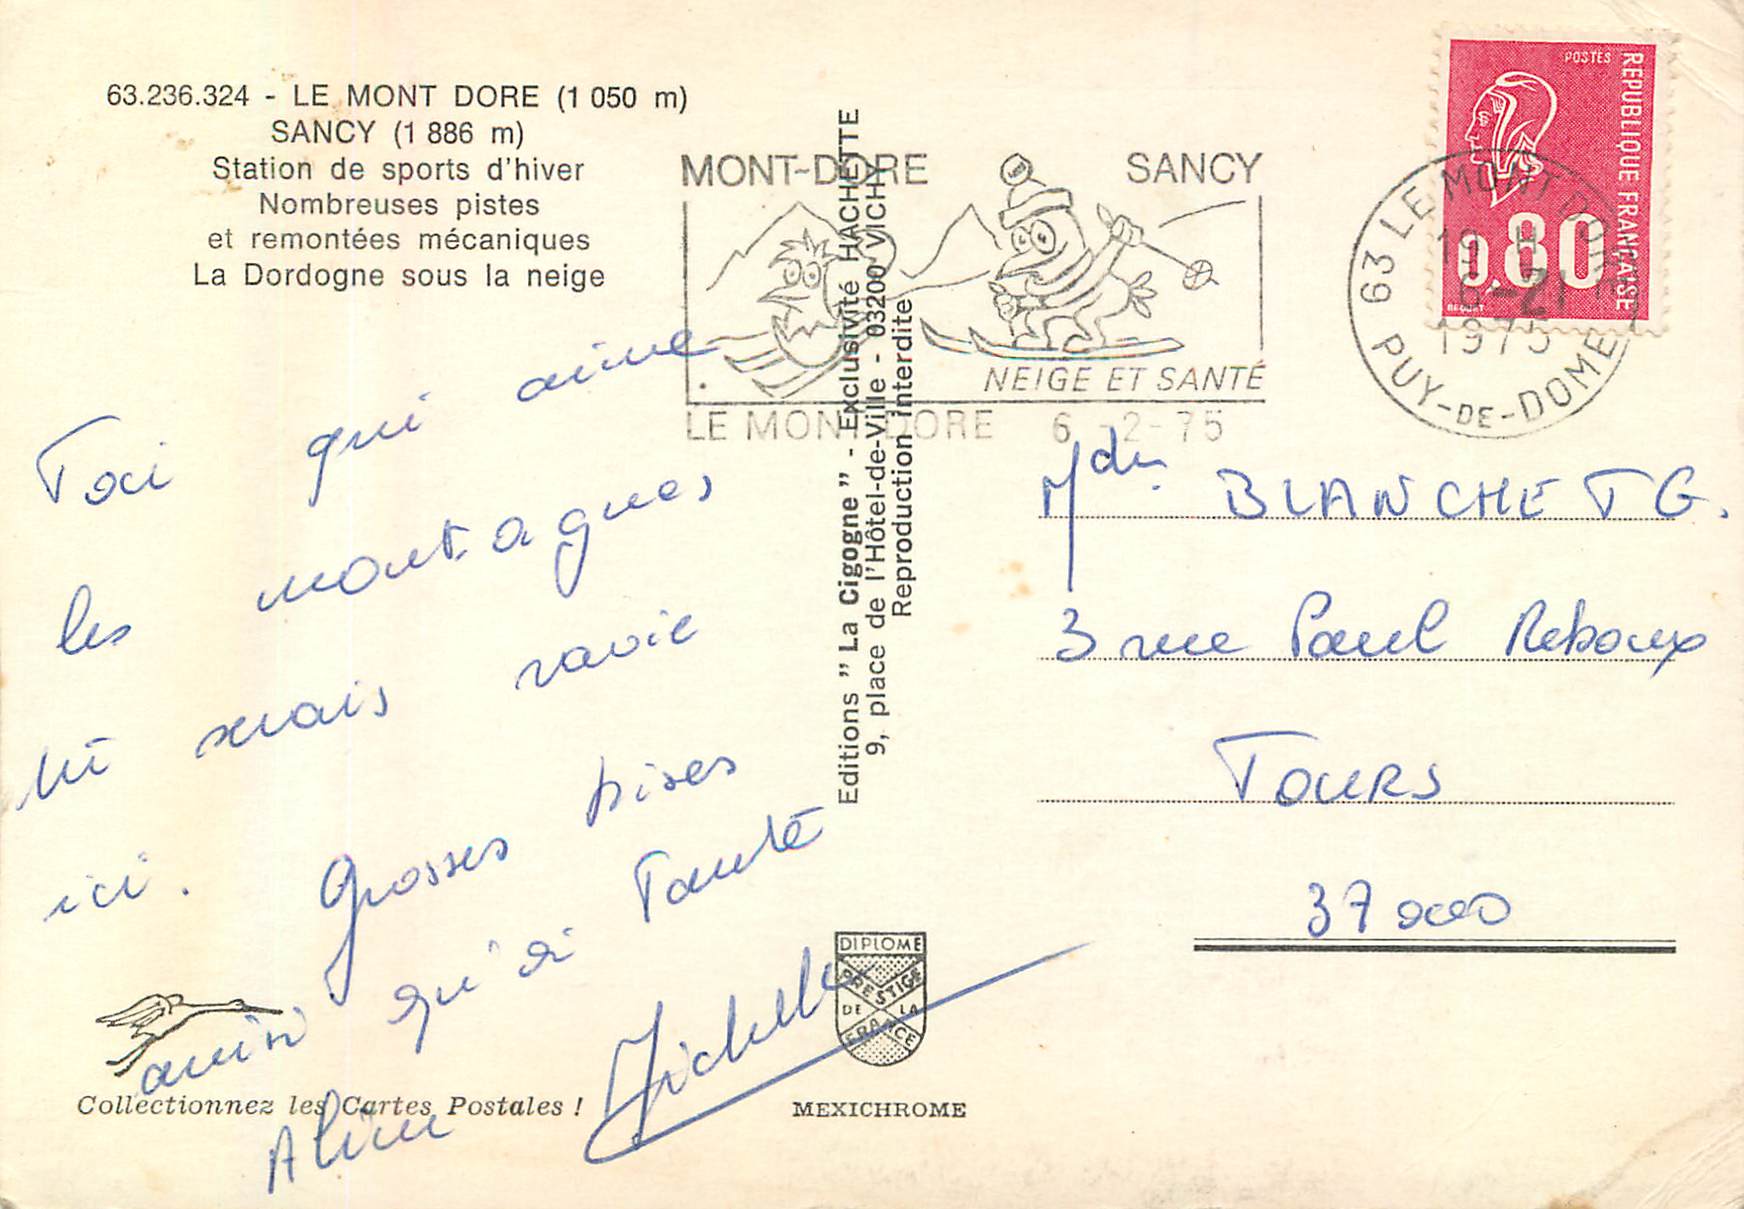 63.236.324 - LE MONT DORE (1 050 m)
SANCY (1 886 m)
Station de sports d'hiver
Nombreuses pistes
et remontées mécaniques
La Dordogne sous la neige
Toi qui aime
les montagnes
tu serais ravie
ici. Grosses bises
ainsi qu'à Tante
Aline Michelle
Collectionnez les Cartes Postales !
Editions " La Cigogne " - Exclusivité HACHETTE
9, place de l'Hôtel-de-Ville - 03200 VICHY
Reproduction interdite
DIPLOME
PRESTIGE
DE LA
FRANCE
MEXICHROME
MONT-DORE SANCY
NEIGE ET SANTÉ
LE MONT DORE 6 -2-75
POSTES
REPUBLIQUE FRANÇAISE
0,80
BEQUET
63 LE MONT DORE
19 H
6-2
1975
PUY-DE-DOME
BLANCHET G.
3 rue Paul Reboux
TOURS
37000